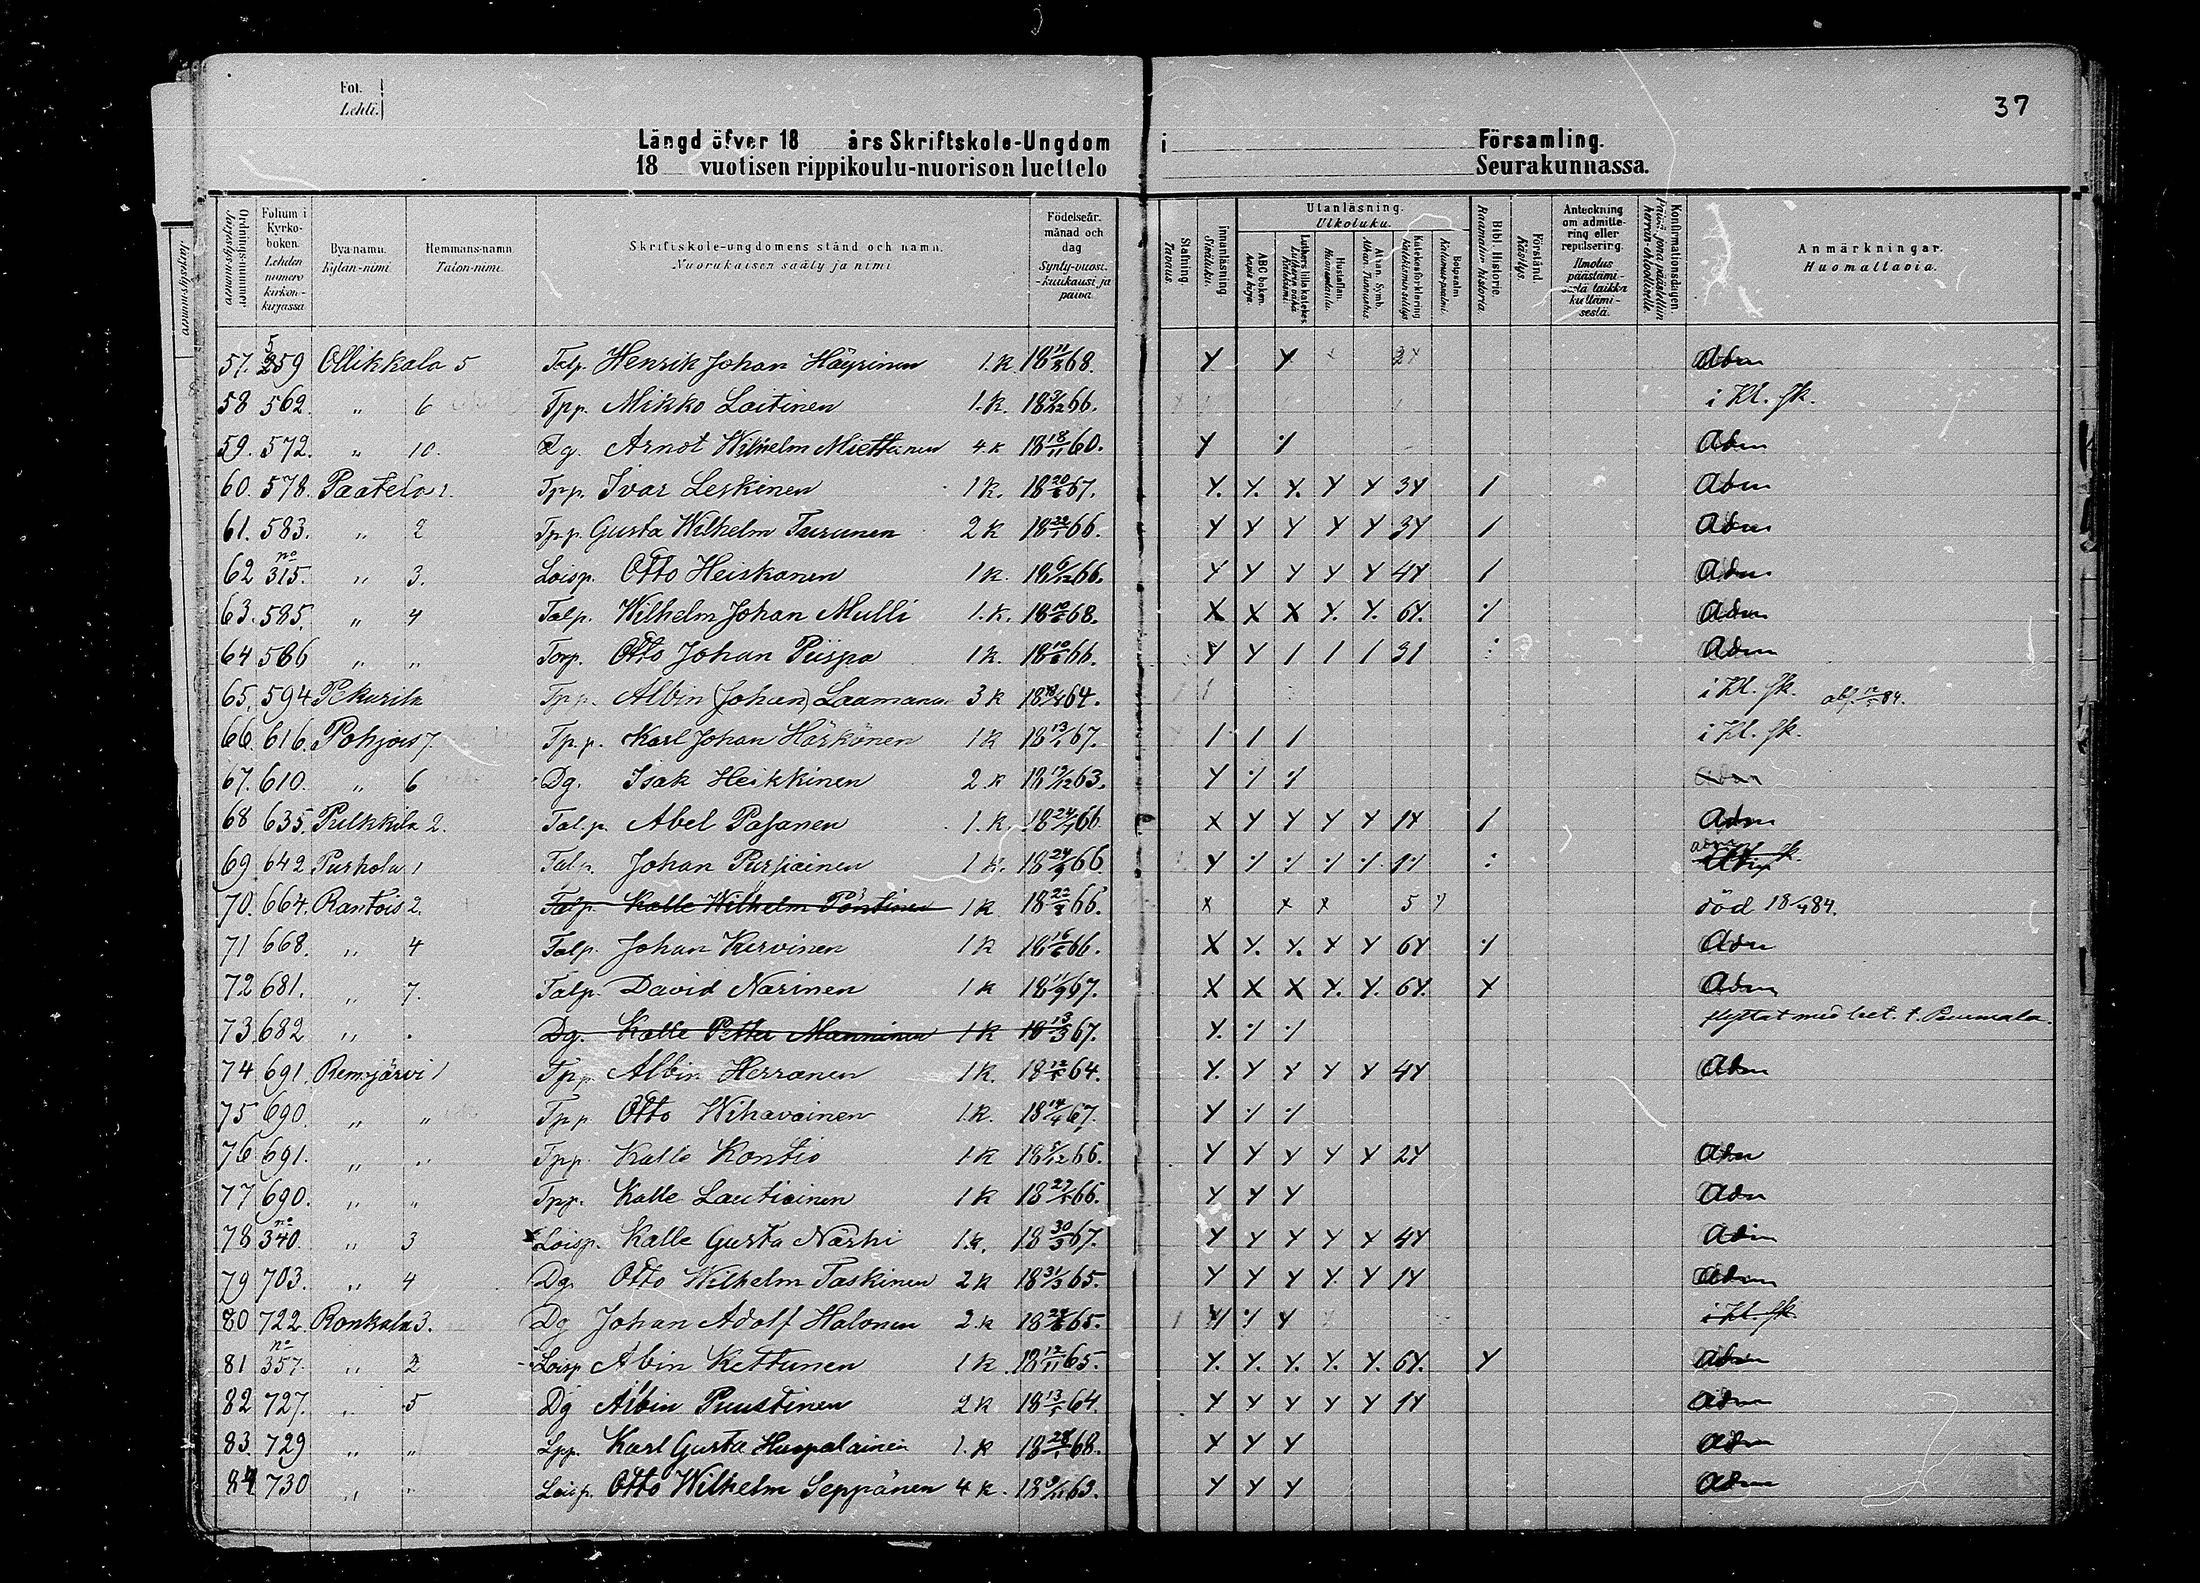 37
Fol.
Lehti.
Längd öfver 18 års Skriftskole-Ungdom i Församling.
18 vuotisen rippikoulu-nuorison luettelo Seurakunnassa.
Ordnings-nummer Järjestysnumero
Folium i Kyrko-boken. Lehden numero kirkon-kirjassa
Bya-namn. Kylän-nimi.
Hemmans-namn. Talon-nimi.
Skriftskole-ungdomens stånd och namn. Nuorukaisen sääty ja nimi
Födelseår. månad och dag Synty-vuosi. -kuukausi ja päivä
Stafning. Tavaus.
Innanläsning Sisäluku.
Utanläsning. Ulkoluku.
ABC boken.
Luthers lilla katekes. Lutherin vähä Katekismi.
Hustaflan. Huoneentaulu.
Atvan. Symb. Atan. Tunnustus
Katekesförklaring Katekismus selitys
Botpsalm Katumus-psalmi.
Bibl. Historie. Raamatun historia
Förstånd. Käsitys.
Anteckning om admittering eller repulsering. Ilmotus päästämisestä taikka
Konfirmationsdagen.
Anmärkningar. Huomattavia.
57. 559 Ollikkala 5 Talp. Henrik Johan Häyrinen 1.k. 18 11/ 68. Y Y Adm
58 562. " 6 Tpp. Mikko Laitinen 1.k. 18 /12 66. i Kl. sk.
59. 572. " 10. Dg. Arnot Wilhelm Miettinen 4.k 18 18/11 60. Y ./. Adm
60. 578. Paatela 1. Tpp. Ivar Leskinen 1k. 18 20/ 67. Y. Y. Y. Y Y 3Y 1 Adm
61. 583. " 2 Tpp. Gusta Wilhelm Turunen 2k 18 22/ 66. Y Y Y Y Y 3Y 1 Adm
62 no 315. " 3. Loisp. Otto Heiskanen 1k. 18 6/12 66. Y Y Y Y Y 4Y 1 Adm
63. 585. " 4 Talp. Wilhelm Johan Mulli 1.k. 18 10/ 68. X X X Y. Y. 6Y. ./. Adm
64 566 " " Torp. Otto Johan Piispa 1k. 18 10/ 66. Y Y 1 1 1 31 : Adm
65. 594 Pekurila Tpp. Albin (Johan) Laamanen 3k 18 64. i Kl. sk. 84.
66. 616. Pohjois 7. Tp.p. Karl Johan Härkönen 1k 18 13/ 67. 1 1 1 i Kl. sk.
67. 610. " 6 Dg. Isak Heikkinen 2.k 18 /12 63. Y ./. ./.
68 635. Pulkkila 2. Talp. Abel Pasanen 1.k. 18 24/ 66. X Y Y Y Y 1Y 1 Adm
69. 642 Purhola 1 Talp. Johan Pursiainen 1k. 18 24/ 66 Y ./. ./. ./. ./. 1./. :
70. 664. Rantois 2. Talp. Kalle Wilhelm Pöntinen 1k 18 22/ 66. X X X 5 död 18/4 84.
71 668. " 4 Talp. Johan Kurvinen 1k 18 16/ 66. X Y. Y. Y Y 6Y. ./. Adm
72 681. " 7. Talp. David Närinen 1k 18 11/9 67. X X X Y. Y. 6Y. Y Adm
73 682 " Dg. Kalle Petter Manninen 1k 18 13/3 67. Y. ./. ./. flyttat med bet. t. Puumala.
74 691 Remojärvi 1 Tpp Albin Herranen 1k. 18 64. Y. Y Y Y Y 4Y Adm
75 690. " " Tpp Otto Wihavainen 1.k. 18 14/4 67. Y ./. ./.
76 691. " " Tpp. Kalle Kontio 1k 18 /12 66. Y Y Y Y Y 2Y Adm
77 690. " " Tpp. Kalle Lautiainen 1k 18 66. Y Y Y Adm
78 no 340. " 3 Loisp. Kalle Gusta Närhi 1.k. 18 30/3 67. Y Y Y Y Y 4Y Adm
79 703. " 4 Dg. Otto Wilhelm Taskinen 2k 18 31/3 65. Y Y Y Y. Y 1Y Adm
80 722. Ronkala 3. Dg Johan Adolf Halonen 2.k 18 65. ./. Y i Kl. sk.
81 no 357. " 2 Loisp Albin Kettunen 1k. 18 12/11 65. Y. Y. Y. Y. Y. 6Y. Y Adm
82 727. " 5 Dg Albin Puustinen 2k 18 13/ 64. Y Y Y Y Y 1Y Adm
83. 729 " " Lpp. Karl Gusta Huopalainen 1.k 18 28/ 68. Y Y Y Adm
84 730 " " Loisp. Otto Wilhelm Seppänen 4k. 18 63. Y Y Y Adm